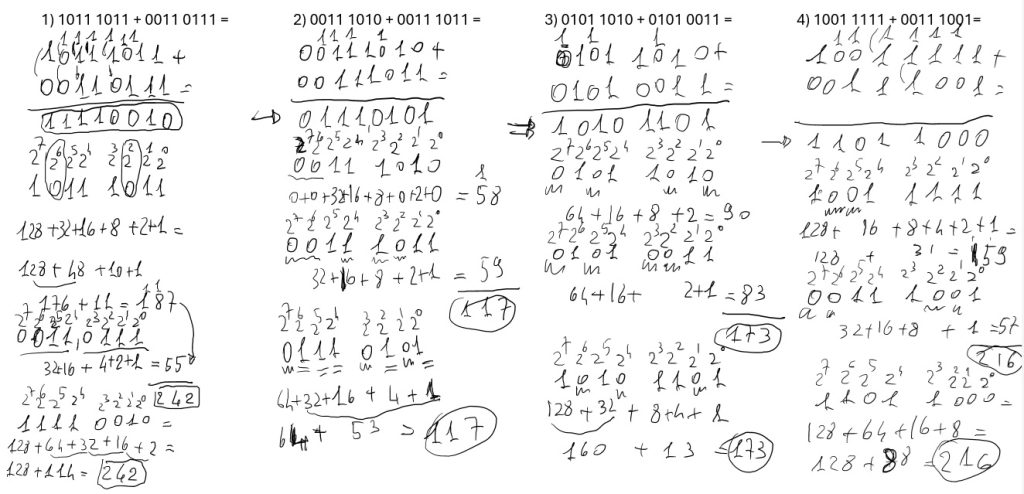 1) 1011 1011 + 0011 0111 =
1 1 1 1 1 1
1011 1011 +
0011 0111 =
11110010
2⁷ 2⁶ 2⁵ 2⁴ 2³ 2² 2¹ 2⁰
1 0 1 1 1 0 1 1
128+32+16+8+2+1=
128+48+10+1
176+11=187
2⁷ 2⁶ 2⁵ 2⁴ 2³ 2² 2¹ 2⁰
0011,0111
32+16+4+2+1=55
242
2⁷ 2⁶ 2⁵ 2⁴ 2³ 2² 2¹ 2⁰
1111 0010=
128+64+32+16+2=
128+114=242
2) 0011 1010 + 0011 1011 =
1 1 1 1
00111010+
00111011=
01110101
2⁷ 2⁶ 2⁵ 2⁴ 2³ 2² 2¹ 2⁰
0011 1010
0+0+32+16+8+0+2+0=58
1
2⁷ 2⁶ 2⁵ 2⁴ 2³ 2² 2¹ 2⁰
0011 1011
32+16+8+2+1=59
117
2⁷ 2⁶ 2⁵ 2⁴ 2³ 2² 2¹ 2⁰
0111 0101
64+32+16+4+1
64+53=117
3) 0101 1010 + 0101 0011 =
1 1 1
0101 1010+
0101 0011=
1010 1101
2⁷ 2⁶ 2⁵ 2⁴ 2³ 2² 2¹ 2⁰
0101 1010
64+16+8+2=90
2⁷ 2⁶ 2⁵ 2⁴ 2³ 2² 2¹ 2⁰
0101 0011
64+16+ 2+1=83
173
2⁷ 2⁶ 2⁵ 2⁴ 2³ 2² 2¹ 2⁰
1010 1101
128+32+8+4+1
160+13=173
4) 1001 1111 + 0011 1001=
1 1 1 1 1 1
1001 1111+
0011 1001=
1101 1000
2⁷ 2⁶ 2⁵ 2⁴ 2³ 2² 2¹ 2⁰
1001 1111
128+ 16+8+4+2+1=
128 + 31 = 159
2⁷ 2⁶ 2⁵ 2⁴ 2³ 2² 2¹ 2⁰
0011 1001
32+16+8 + 1=57
216
2⁷ 2⁶ 2⁵ 2⁴ 2³ 2² 2¹ 2⁰
1101 1000=
128+64+16+8=
128+88=216